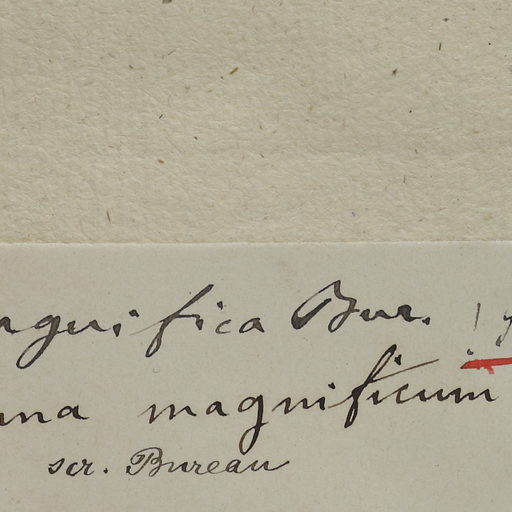 agnifica Bur. !
una magnificum
scr. Bureau